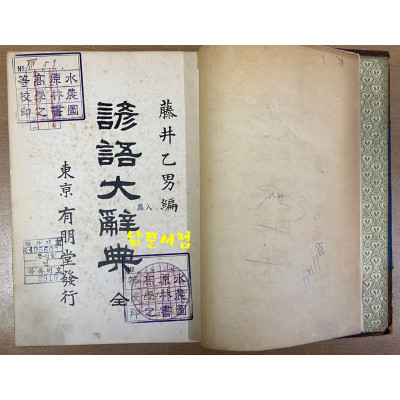 No. XIII. 59.
水原高等
農林學校
圖書之印
藤井乙男編
諺語大辭典 全
東京 有朋堂發行
한문서점
水原高等
農林學校
圖書之印